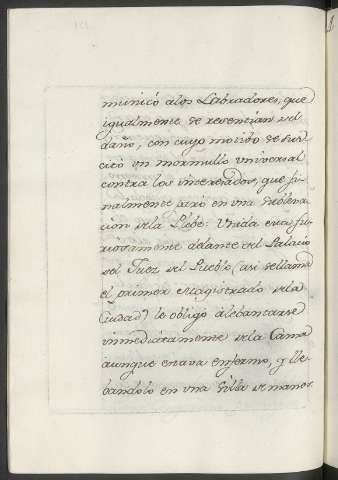 municó alos Labradores, que
igualmente se resentian del
daño, con cuyo motibo se sus
citó un mormullo universal
contra los interesados, que fi
nalmente paró en una sublena
cion dela Plebe: Unida esta fu
riosamente adelante del Palacio
del Juez del Pueblo (asi sellama
el primer Magistrado dela
Ciudad) le obligó álebantarse
inmediatamente dela Cama
aunque estava enfermo, y lle
bandolo en una Silla de manos